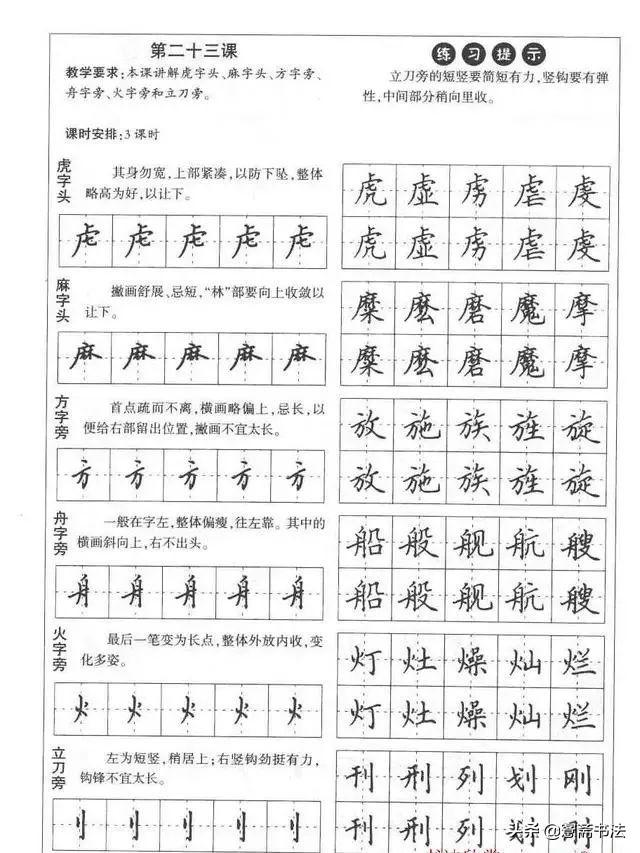 第二十三课
教学要求:本课讲解虎字头、麻字头、方字旁、
舟字旁、火字旁和立刀旁。
课时安排:3课时
练习提示
立刀旁的短竖要简短有力,竖钩要有弹
性,中间部分稍向里收。
虎字头
其身勿宽,上部紧凑,以防下坠,整体
略高为好,以让下。
虍 虍 虍 虍 虍
虎 虚 虏 虐 虔
虎 虚 虏 虐 虔
麻字头
撇画舒展、忌短,“林”部要向上收敛以
让下。
麻 麻 麻 麻 麻
糜 麽 磨 魔 摩
糜 麽 磨 魔 摩
方字旁
首点疏而不离,横画略偏上,忌长,以
便给右部留出位置,撇画不宜太长。
方 方 方 方 方
放 施 族 旌 旋
放 施 族 旌 旋
舟字旁
一般在字左,整体偏瘦,往左靠。其中的
横画斜向上,右不出头。
舟 舟 舟 舟 舟
船 般 舰 航 艘
船 般 舰 航 艘
火字旁
最后一笔变为长点,整体外放内收,变
化多姿。
火 火 火 火 火
灯 灶 燥 灿 烂
灯 灶 燥 灿 烂
立刀旁
左为短竖,稍居上;右竖钩劲挺有力,
钩锋不宜太长。
刂 刂 刂 刂 刂
刊 刑 列 划 刚
刊 刑 列 划 刚
头条@蒿斋书法